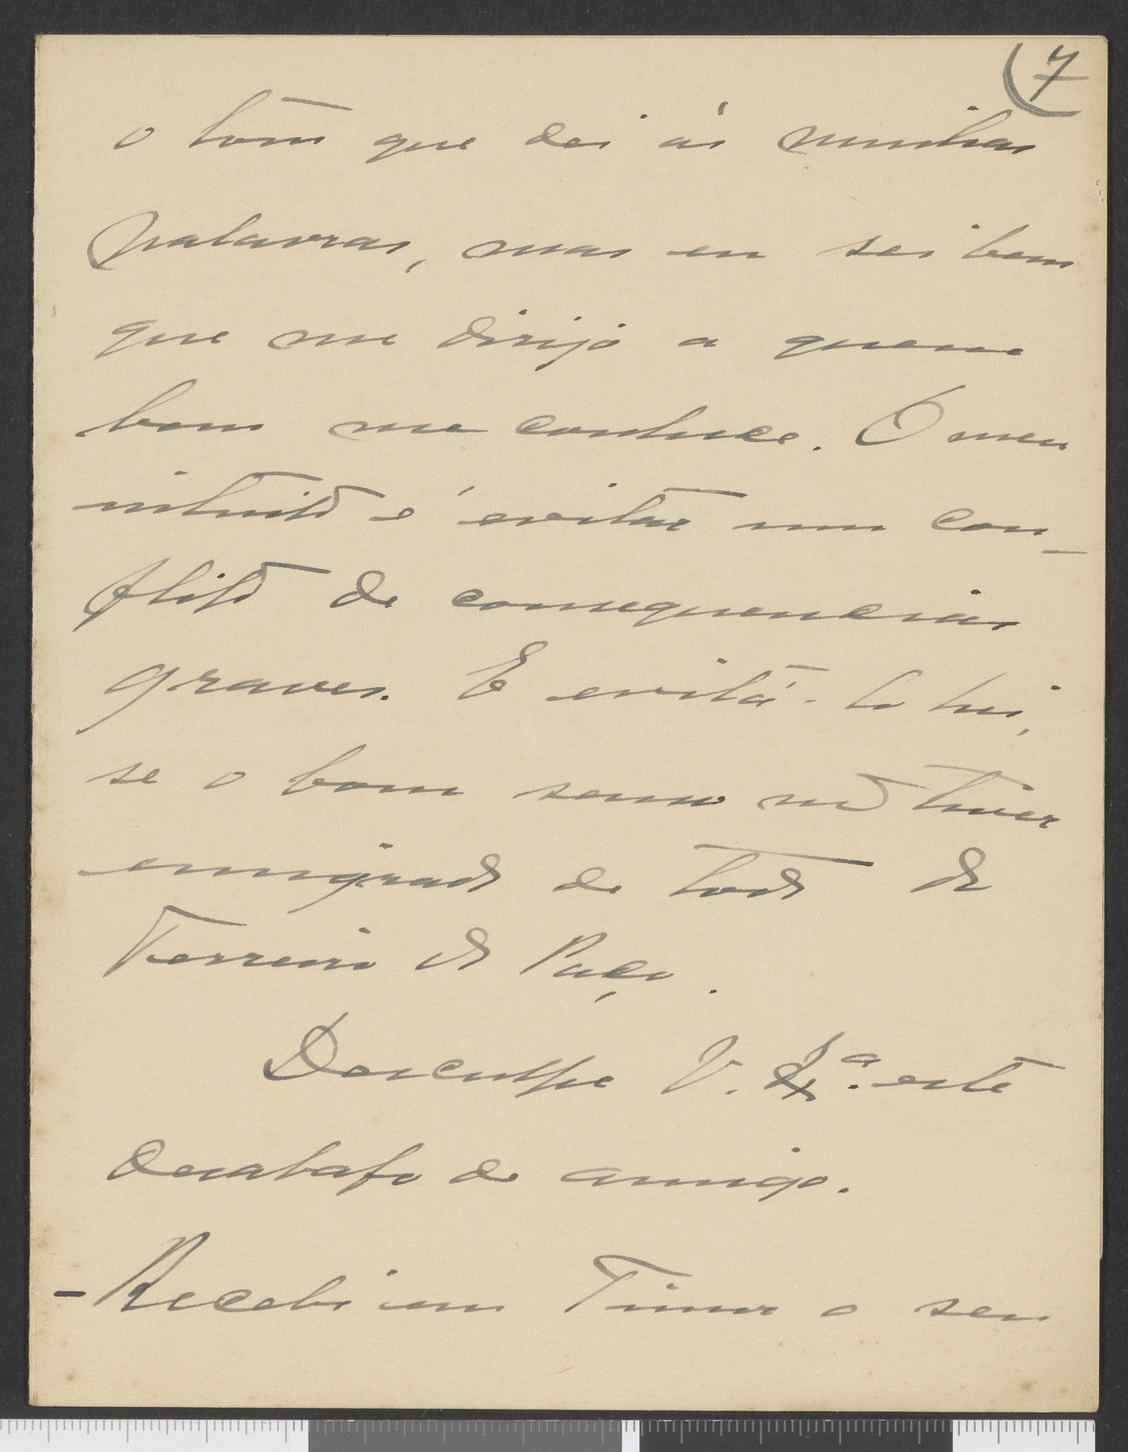 7
o tom que dei ás minhas
palavras, mas eu sei bem
que me dirijo a quem
bem me conhece. O meu
intuito é evitar um con-
flito de consequencias
graves. E evitá-lo hei,
se o bom senso não tiver
emigrado de todo do
Terreiro do Paço.
Desculpe V. Exª. este
desabafo de amigo.
- Recebi em Timor o seu